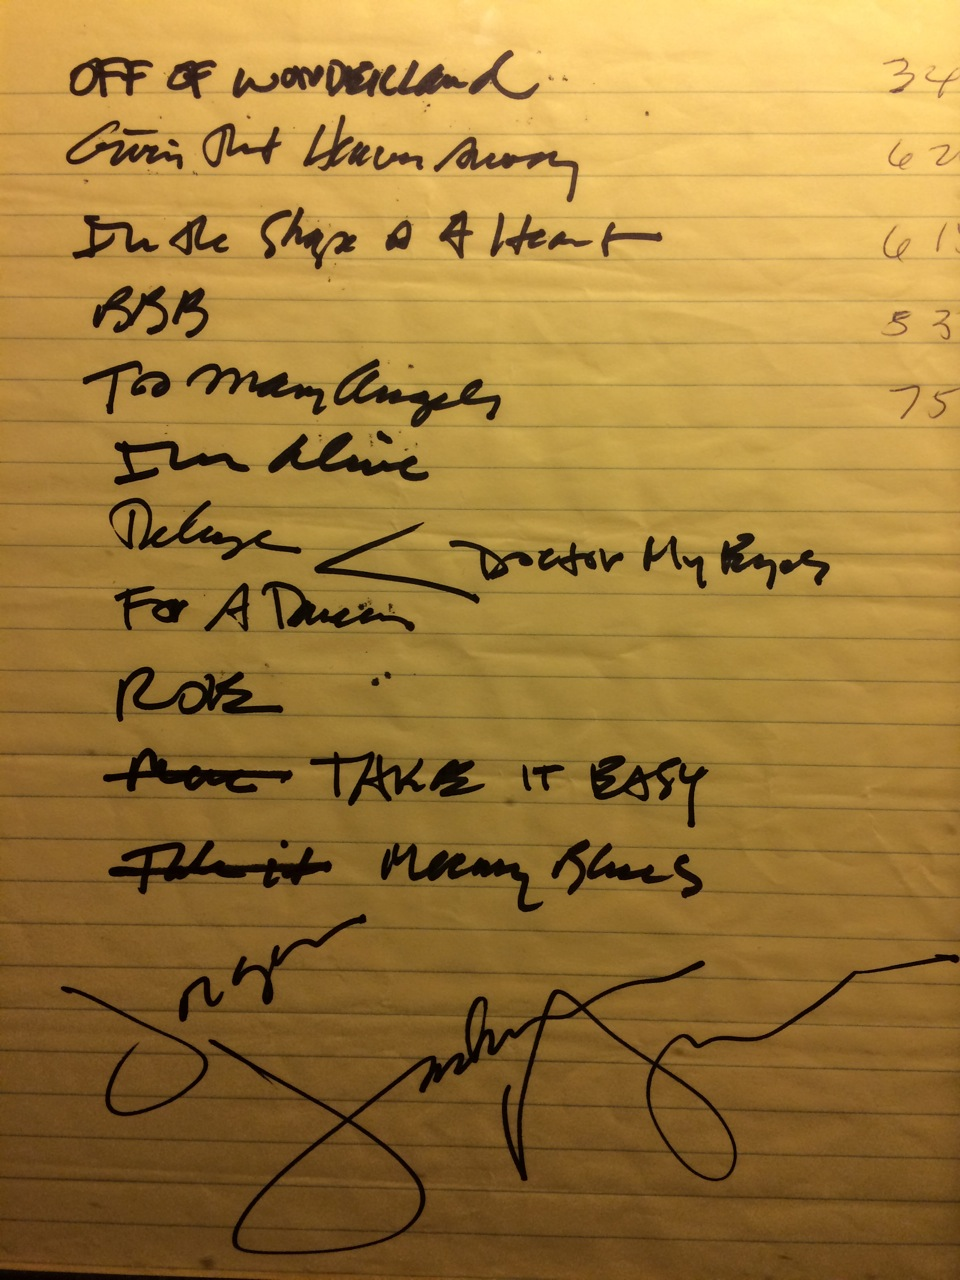 OFF OF WONDERLAND 34
Givin That Heaven Away 62
In the Shape of A Heart 61
BBB 53
Too Many Angels 75
I'm Alive
Deluge
Doctor My Eyes
For A Dancer
ROVE
TAKE IT EASY
Take it Mercury Blues